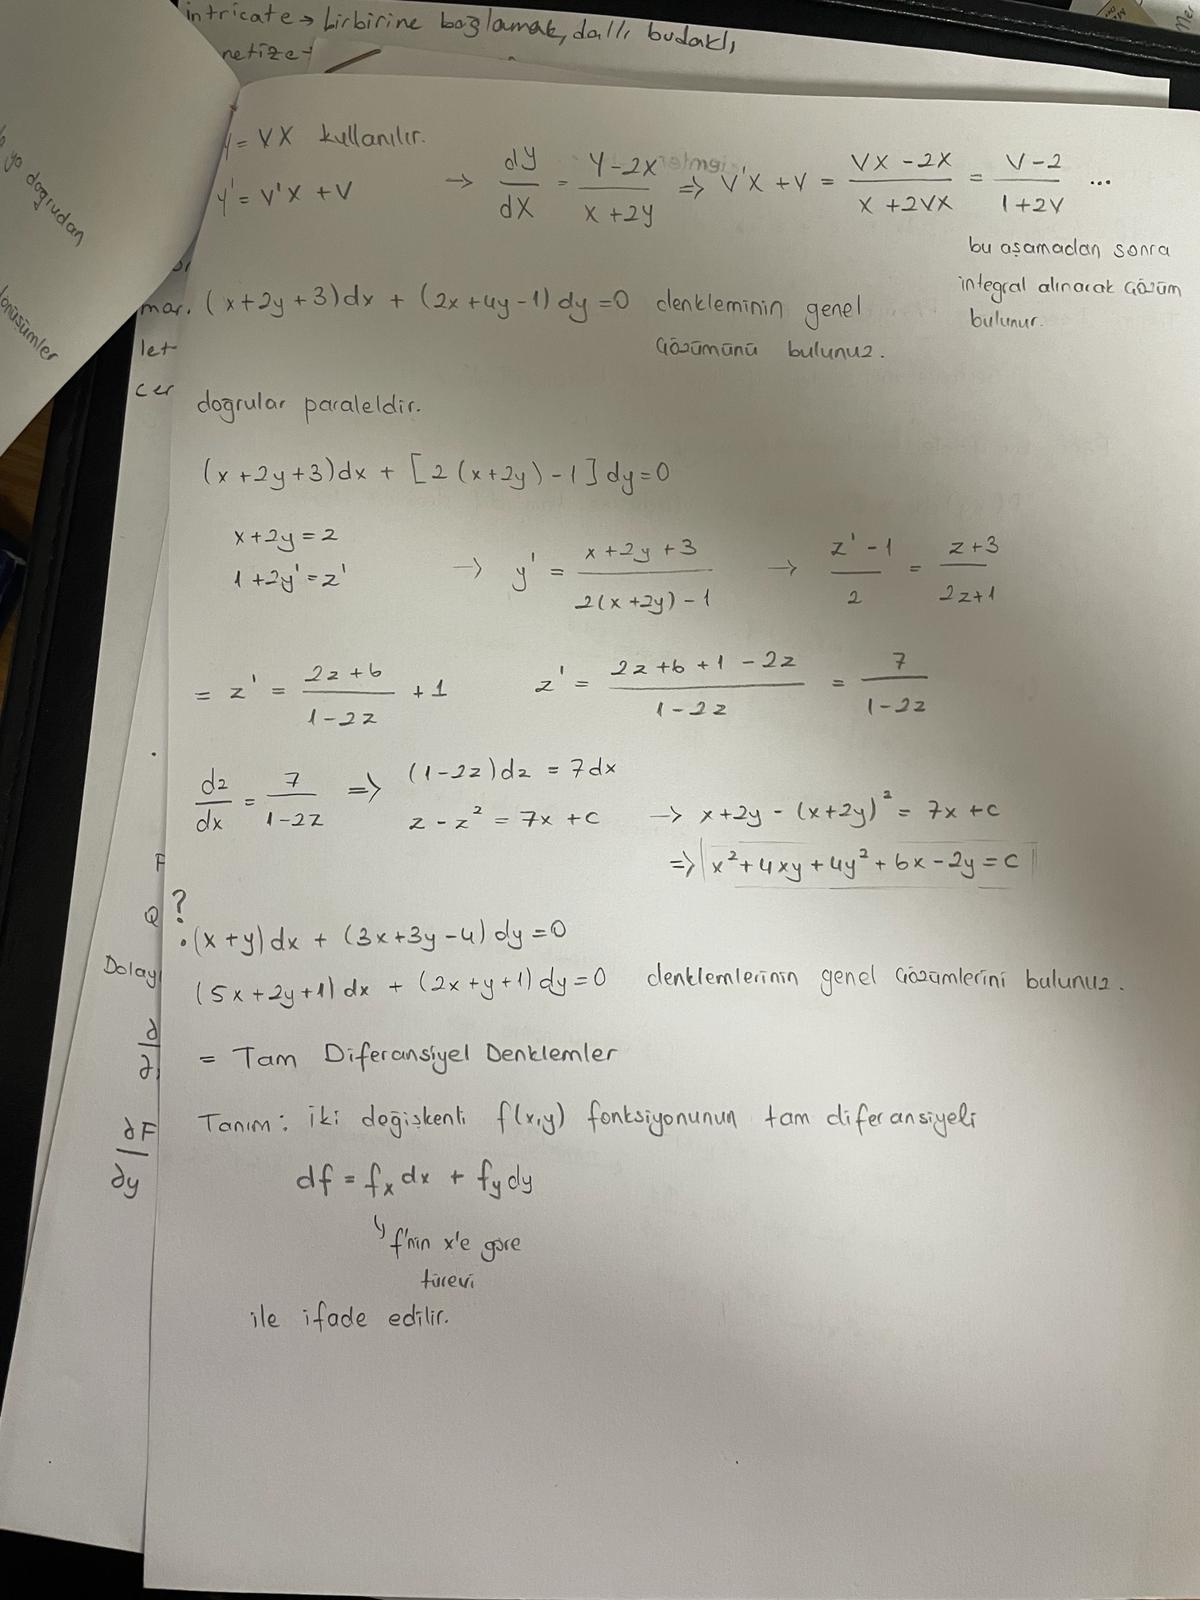 intricate → birbirine bağlamak, dallı budaklı,
netize→
ya doğrudan
dönüşümler
y = VX kullanılır.
y' = V'X + V → dy/dX = (Y-2X)/(X+2Y) ⇒ V'X + V = (VX-2X)/(X+2VX) = (V-2)/(1+2V) ...
bu aşamadan sonra
integral alınarak çözüm
bulunur.
(x+2y+3)dx + (2x+4y-1)dy=0 denkleminin genel
çözümünü bulunuz.
mar.
let
cer
doğrular paraleldir.
(x+2y+3)dx + [2(x+2y)-1]dy=0
x+2y=z
1+2y'=z' → y' = (x+2y+3)/(2(x+2y)-1) → (z'-1)/2 = (z+3)/(2z+1)
= z' = (2z+6)/(1-2z) +1 z' = (2z+6+1-2z)/(1-2z) = 7/(1-2z)
dz/dx = 7/(1-2z) ⇒ (1-2z)dz = 7dx
z-z² = 7x+c → x+2y-(x+2y)² = 7x+c
⇒ x²+4xy+4y²+6x-2y=c
?
(x+y)dx + (3x+3y-4)dy=0
(5x+2y+1)dx + (2x+y+1)dy=0 denklemlerinin genel çözümlerini bulunuz.
F
Q
Dolayı
∂
∂
= Tam Diferansiyel Denklemler
Tanım: iki değişkenli f(x,y) fonksiyonunun tam diferansiyeli
∂F/∂y
df = fx dx + fy dy
f'nin x'e göre
türevi
ile ifade edilir.